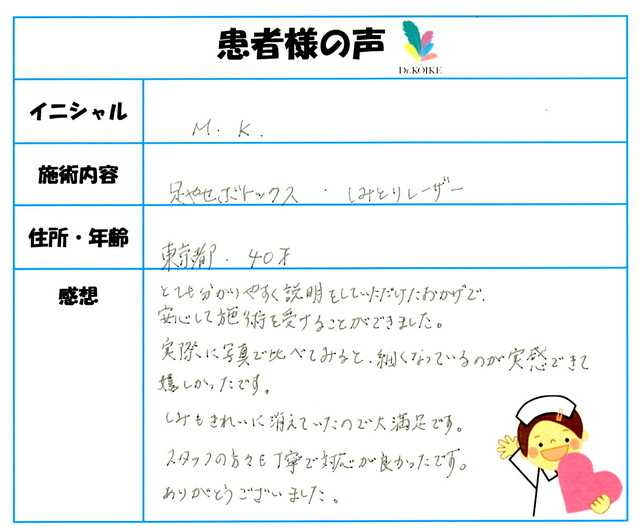 患者様の声
Dr.KOIKE
イニシャル
M. K.
施術内容
足やせボトックス ・ しみとりレーザー
住所・年齢
東京都. 40才
感想
とても分かりやすく説明をしていただけたおかげで、
安心して施術を受けることができました。
実際に写真で比べてみると、細くなっているのが実感できて
嬉しかったです。
しみもきれいに消えていたので大満足です。
スタッフの方々も丁寧で対応が良かったです。
ありがとうございました。